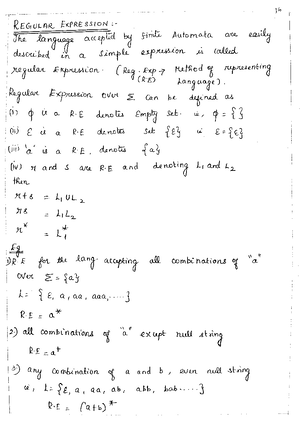 REGULAR EXPRESSION :-
The language accepted by finite Automata are easily
described in a simple expression is called
regular Expression. (Reg. Exp → Method of representing
(R.E) Language).
Regular Expression over Σ can be defined as
(i) ϕ is a R.E denotes Empty set. ie, ϕ = { }
(ii) ε is a R.E denotes set {ε} ie ε = {ε}
(iii) 'a' is a R.E. denotes {a}
(iv) r and s are R.E and denoting L₁ and L₂
then
r+s = L₁UL₂
rs = L₁L₂
r* = L₁*
Eg
1) R.E for the lang. accepting all combinations of "a"
over Σ = {a}
L = { ε, a, aa, aaa, ..... }
R.E = a*
2) all combinations of "a" except null string
R.E = a⁺
3) any combination of a and b, even null string
ie, L = {ε, a, aa, ab, abb, bab ..... }
R.E = (a+b)*